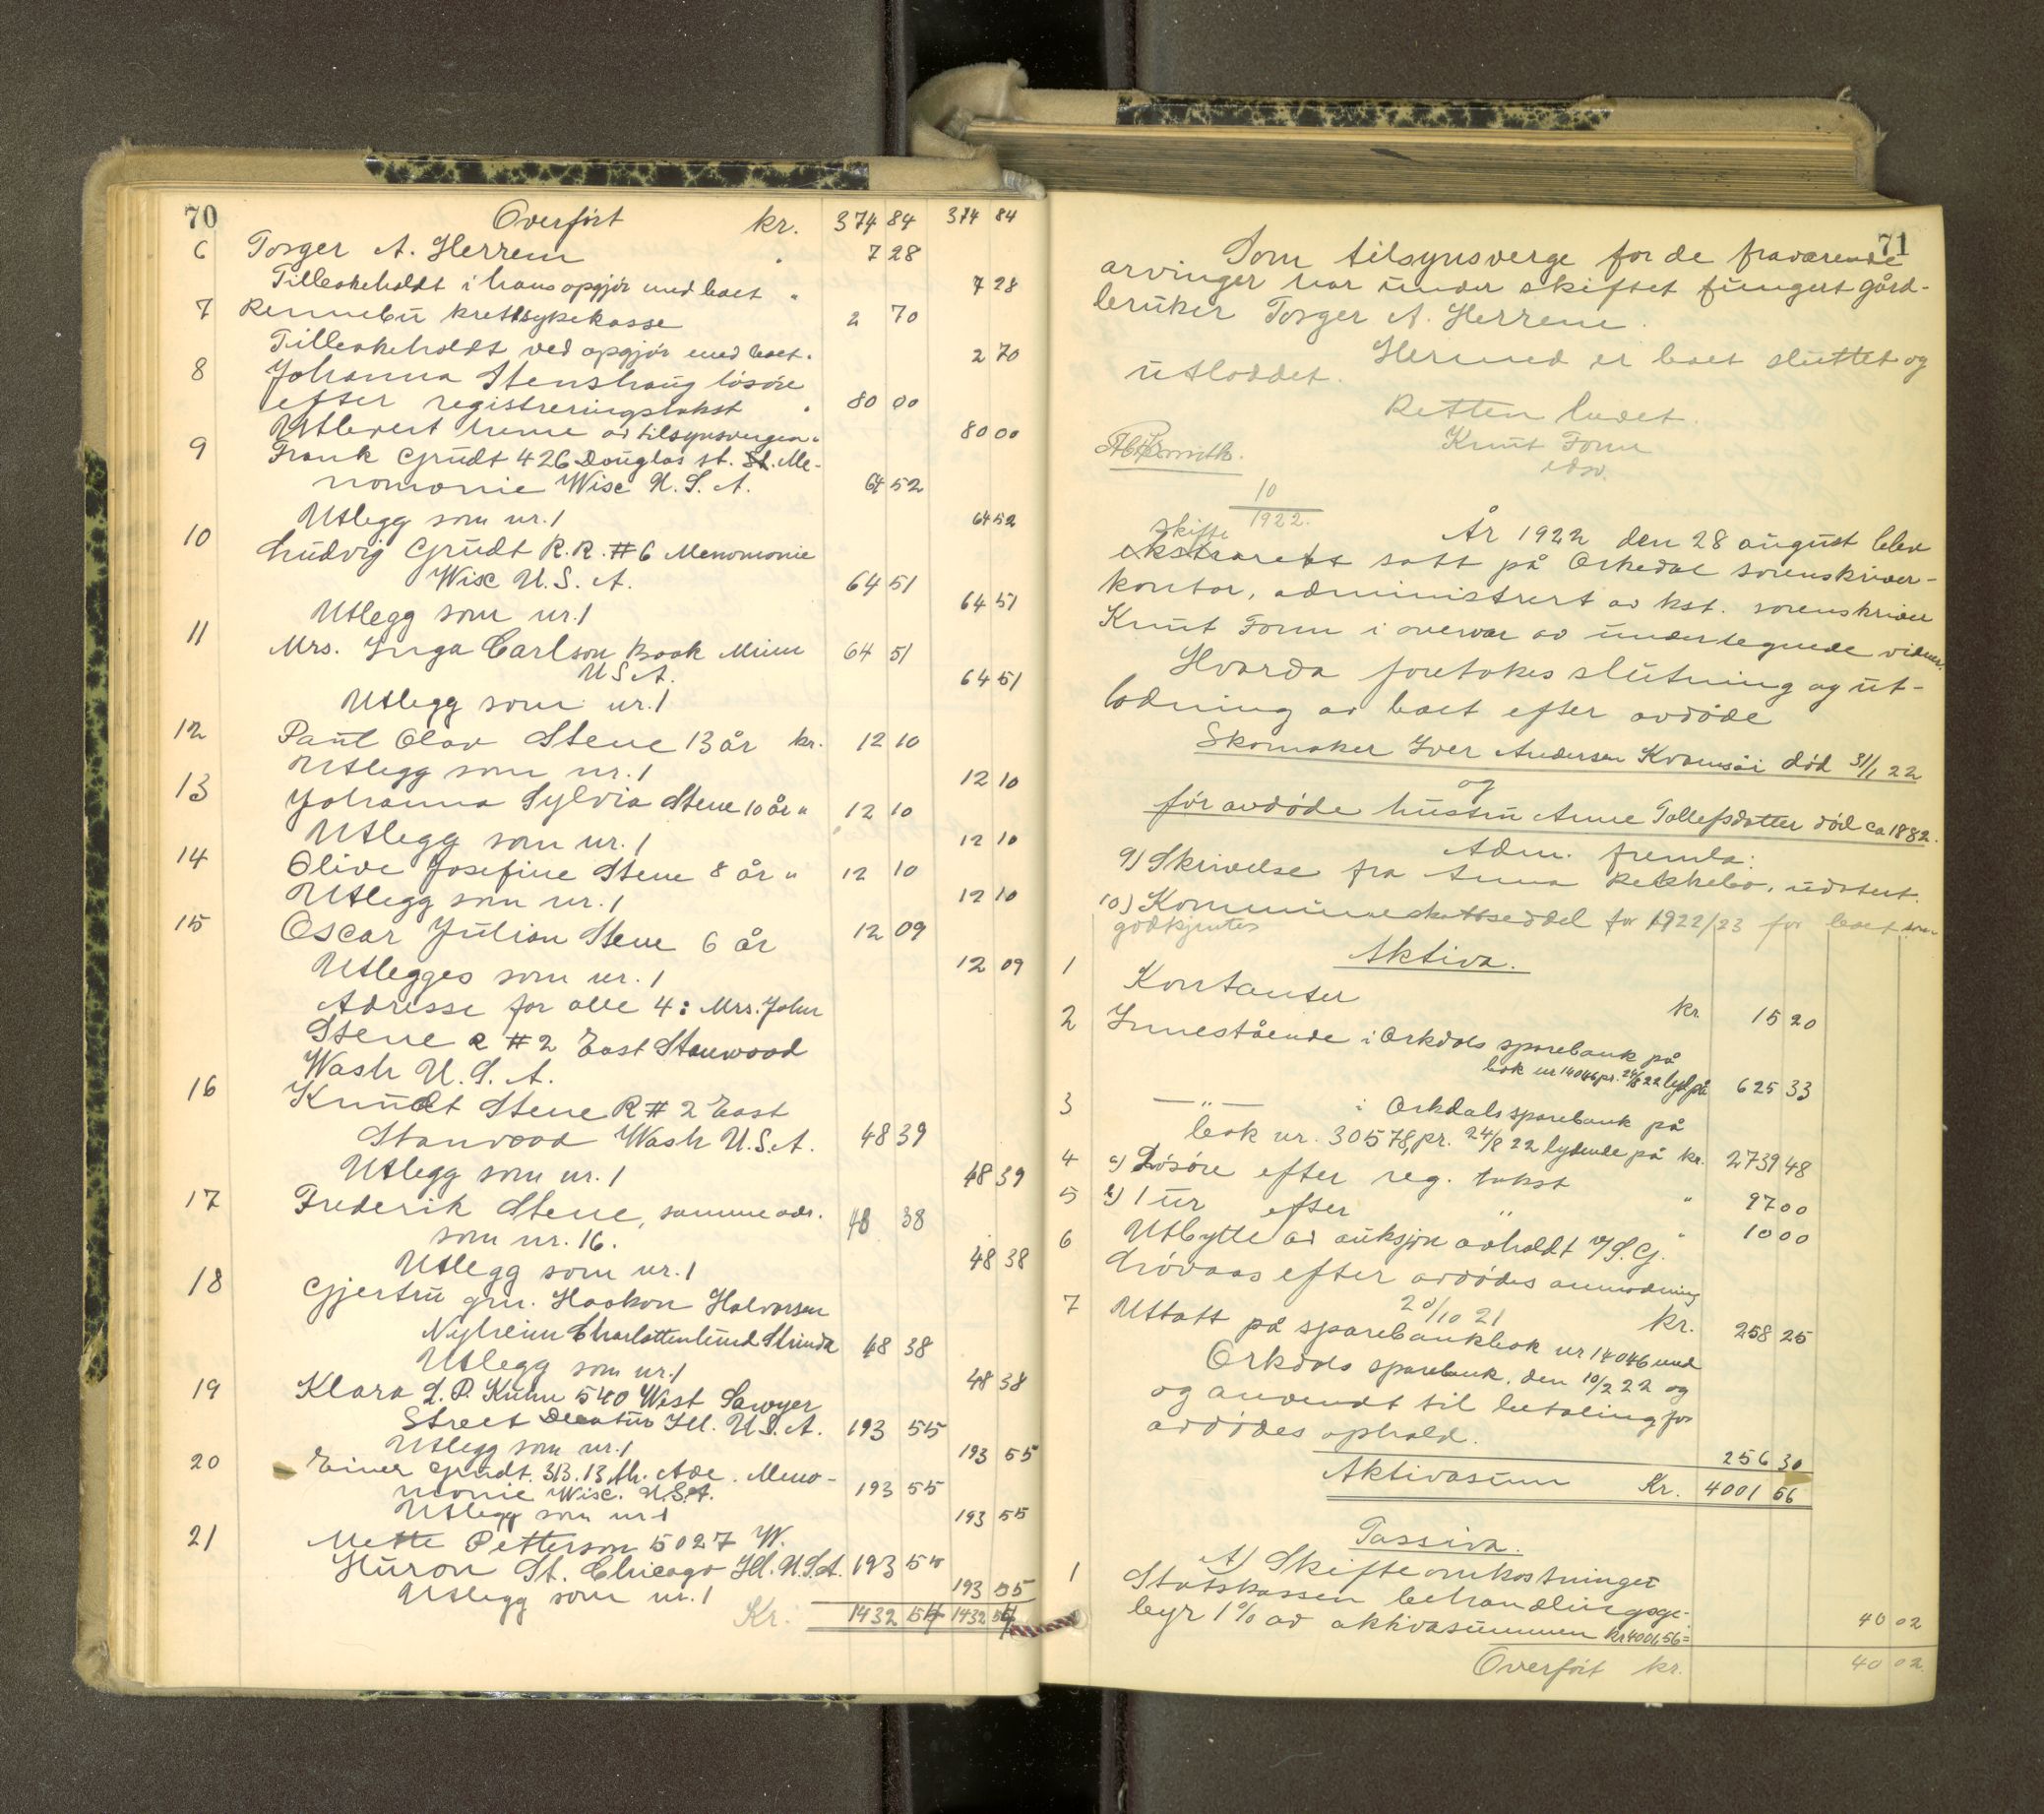 70
Overført kr. 374 84 374 84
6 Torger A. Herrem " 7 28
Tilbakeholdt i hans opgjør med boet " 7 28
7 Rennebu kretssykekasse 2 70
Tilbakeholdt ved opgjør med boet. 2 70
8 Johanna Stenshaug løsøre
efter registreringstakst " 80 00
Utlevert henne av tilsynsvergen " 80 00
9 Frank Grudt 426 Douglas st. Me-
nomonie Wisc U.S.A. 64 52
Utlegg som nr. 1 64 52
10 Ludvig Grudt R.R. #6 Menomonie
Wisc U.S.A. 64 51
Utlegg som nr. 1 64 51
11 Mrs. Inga Carlson Book Minn
U.S.A. 64 51
Utlegg som nr. 1 64 51
12 Paul Olav Stene 13 år kr. 12 10
Utlegg som nr. 1 12 10
13 Johanna Sylvia Stene 10 år " 12 10
Utlegg som nr. 1 12 10
14 Olive Josefine Stene 8 år " 12 10
Utlegg som nr. 1 12 10
15 Oscar Julian Stene 6 år 12 09
Utlegges som nr. 1 12 09
Adresse for alle 4: Mrs. John
Stene R #2 East Stanwood
Wash U.S.A.
16 Knudt Stene R #2 East
Stanwood Wash U.S.A. 48 39
Utlegg som nr. 1 48 39
17 Frederik Stene, samme adr.
som nr. 16. 48 38
Utlegg som nr. 1 48 38
18 Gjertru gm. Haakon Halvorsen
Nyheim Charlottenlund Strinda 48 38
Utlegg som nr. 1 48 38
19 Klara L.P. Kuhn 540 West Sawyer
Street Decatur Ill. U.S.A. 193 55
Utlegg som nr. 1 193 55
20 Einer Grudt. 313. 13 th. Ave. Meno-
monie Wisc. U.S.A. 193 55
Utlegg som nr 1 193 55
21 Mette Petterson 5027 W.
Huron St. Chicago Ill. U.S.A. 193 55
Utlegg som nr. 1 193 55
Kr. 1432 54 1432 54
71
Som tilsynsverge for de fraværende
arvinger har under skiftet fungert gård-
bruker Torger A. Herrem.
Hermed er boet sluttet og
utloddet.
Retten hevet.
Knut Forn
edsv.
10
1922.
År 1922 den 28 august blev
skifte
ekstrarett satt på Orkedal sorenskriver-
kontor, administrert av kst. sorenskriver
Knut Forn i overvær av undertegnede vidner.
Hvorda foretokes slutning og ut-
lodning av boet efter avdøde
Skomaker Iver Andersen Kvamsøi død 31/1 22
og
før avdøde hustru Anne Tollefsdatter død ca 1882.
Adm. fremla:
9) Skrivelse fra Anna Rekkebo, udatert.
10) Kommuneskattseddel for 1922/23 for boet som
godkjentes
Aktiva.
1 Kontanter kr. 15 20
2 Innestående i Orkdals sparebank på
bok nr 14046 pr. 24/8 22 lyd. på 625 33
3 — " — i Orkdals sparebank på
bok nr. 30578, pr. 24/8 22 lydende på kr. 2739 48
4 a) Løsøre efter reg. takst " 97 00
5 b) 1 ur efter " " 10 00
6 Utbytte av auksjon avholdt v/ S. G.
Løvaas efter avdødes anmodning
20/10 21 kr. 258 25
7 Uttatt på sparebankbok nr 14046 med
Orkdals sparebank, den 10/2 22 og
og anvendt til betaling for
avdødes ophold. 256 30
Aktivasum Kr. 4001 56
Passiva.
A) Skifteomkostninger
1 Statskassen behandlingsge-
byr 1% av aktivasummen kr 4001,56 = 40 02
Overført kr. 40 02